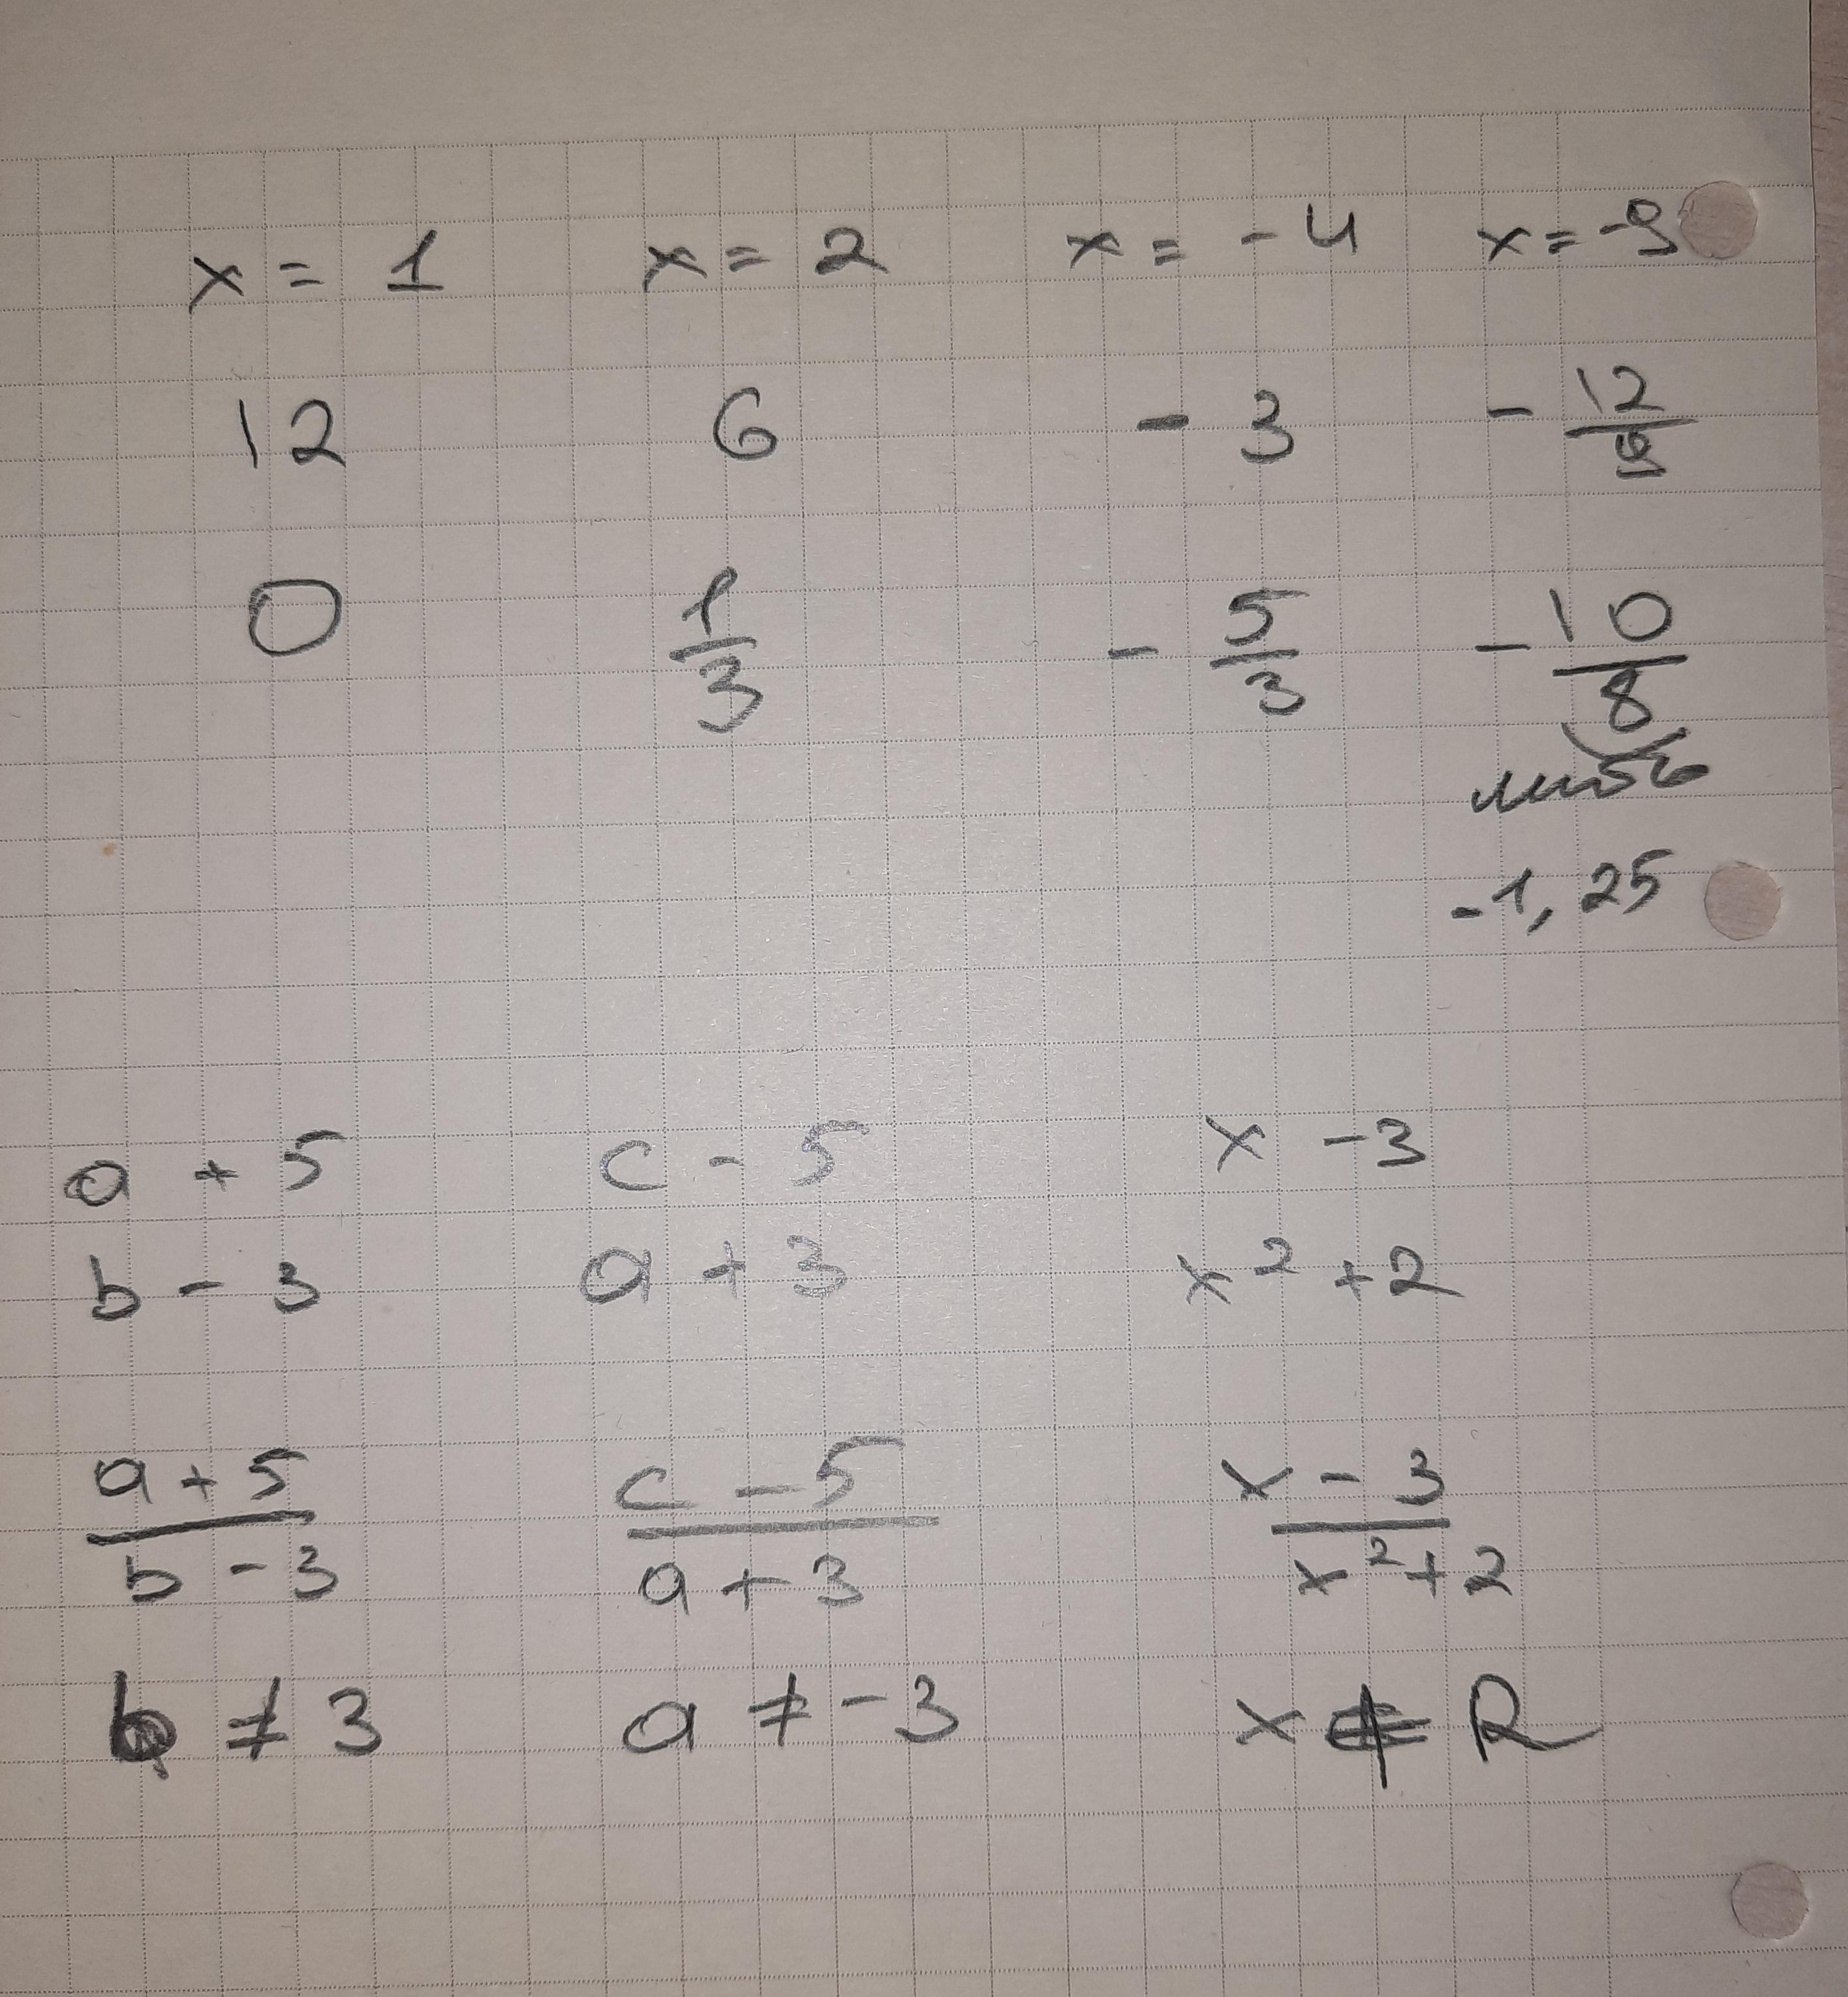 x = 1 x = 2 x = -4 x = -9
12 6 -3 -12/9
0 1/3 -5/3 -10/8
-1,25
a + 5 c - 5 x - 3
b - 3 a + 3 x² + 2
a + 5 / b - 3 c - 5 / a + 3 x - 3 / x² + 2
b ≠ 3 a ≠ -3 x R